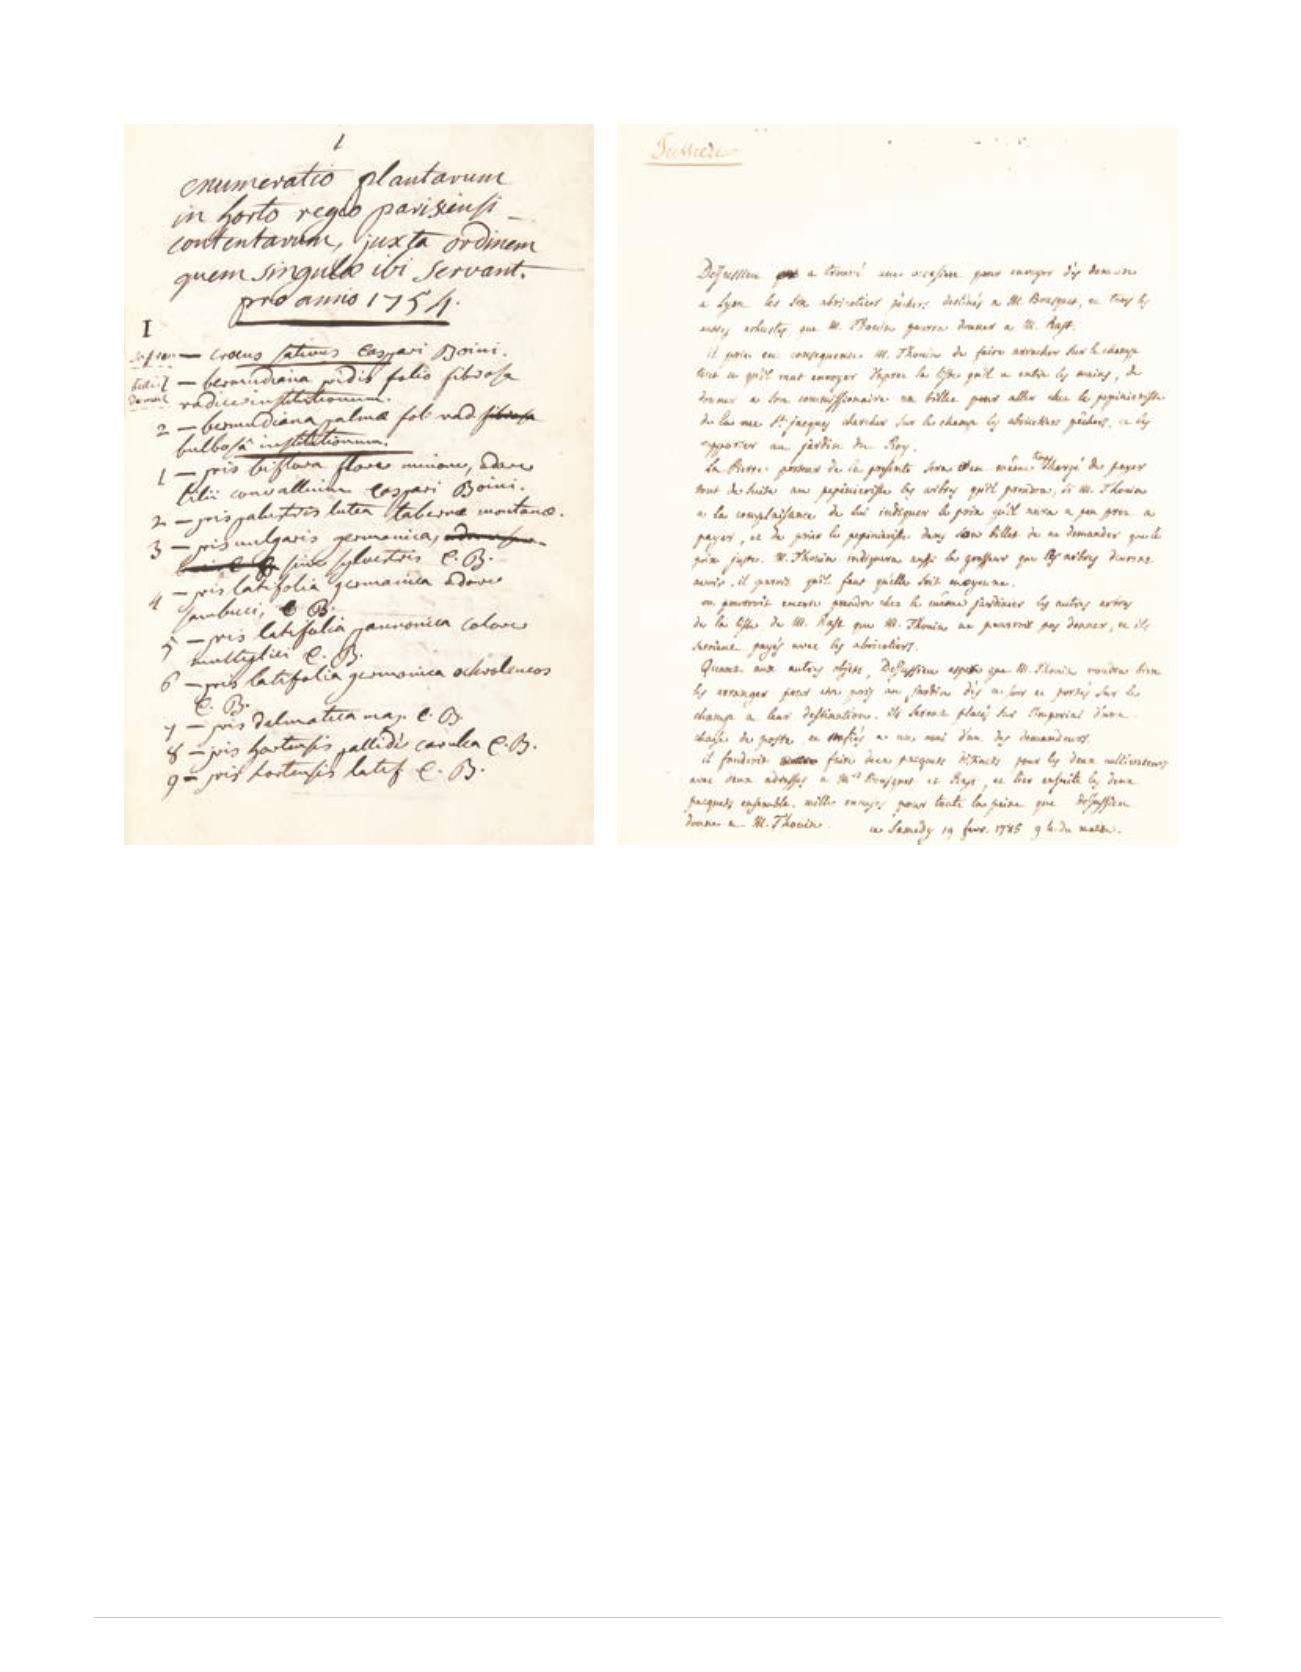 1
enumeratio plantarum
in horto regio parisiensi
contentarum, juxta ordinem
quem singulæ ibi servant.
pro annio 1754.
I
— crocus sativus Caspari Boini.
— bermudiana iridis folio fibrosa
radice institutionum.
2 — bermudiana palmæ fol. rad. fibrosa
bulbosâ institutionum.
1 — iris biflora flore minore, odore
lilii convallium Caspari Boini.
2 — iris palustris lutea tabernæ montanæ.
3 — iris vulgaris germanica,
sive sylvestris C. B.
4 — iris latifolia germanica odore
sambuci, C. B.
5 — iris latifolia pannonica colore
multiplici C. B.
6 — iris latifolia germanica ochroleucos
C. B.
7 — iris dalmatica maj. C. B.
8 — iris hortensis pallidè cærulea C. B.
9 — iris hortensis latif C. B.
Jussieu
DeJussieu a trouvé une occasion pour envoyer dès demain
a Lyon les six abricotiers pêches, destinés a M. Bousquet, et tous les
autres arbustes que M. Thouin pourra donner a M. Rast.
il prie en consequence M. Thouin de faire arracher sur le champ
tout ce qu'il veut envoyer d'apres la liste qu'il a entre les mains, de
donner a son commissionaire un billet pour aller chez le pepinieriste
de la rue St. jacques chercher sur le champ les abricotiers pêches, et les
apporter au jardin du Roy.
La Pierre porteur de la presente sera en même temps chargé de payer
tout de suite au pepinieriste les arbres qu'il prendra, si M. Thouin
a la complaisance de lui indiquer le prix qu'il aura a peu près a
payer, et de prier le pepinieriste dans son billet de ne demander que le
prix juste. M. Thouin indiquera aussi la grosseur que les arbres doivent
avoir. il paroit qu'il faut qu'elle soit moyenne.
on pourroit encore prendre chez le même jardinier les autres arbres
de la liste de M. Rast que M. Thouin ne pourroit pas donner, et ils
seroient payés avec les abricotiers.
Quant aux autres objets, DeJussieu espere que M. Thouin voudra bien
les arranger pour etre pris au jardin dès ce soir et portés sur le
champ a leur destination. ils seront placés sur l'imperial d'une
chaise de poste, et confiés a un ami d'un des demandeurs.
il faudroit faire deux pacquets distincts pour les deux cultivateurs
avec deux adresses a Mrs Bousquet et Rast, et lier ensuite les deux
pacquets ensemble. mille excuses pour toute la peine que DeJussieu
donne a M. Thouin. ce Samedy 19 fevr. 1785 9 h. du matin.